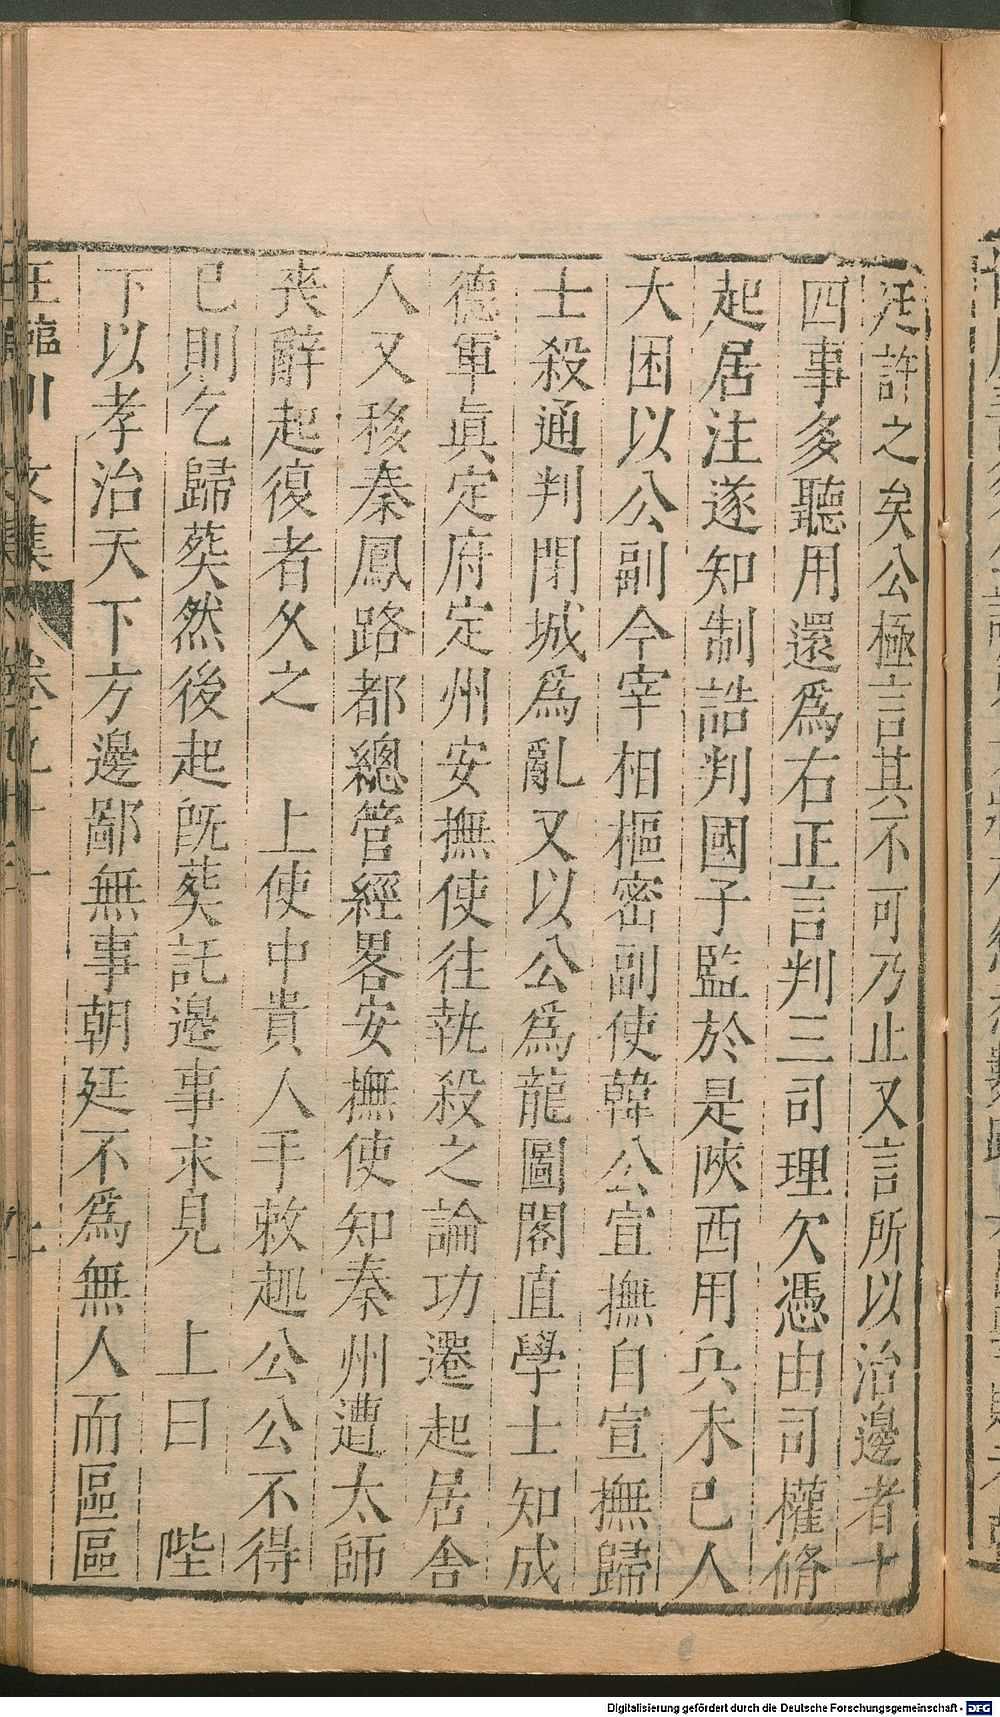 廷許之矣公極言其不可乃止又言所以治邊者十
四事多聽用還爲右正言判三司理欠憑由司權脩
起居注遂知制誥判國子監於是陝西用兵未已人
大困以公副今宰相樞密副使韓公宣撫自宣撫歸
士殺通判閉城爲亂又以公爲龍圖閣直學士知成
德軍眞定府定州安撫使往執殺之論功遷起居舍
人又移秦鳳路都總管經畧安撫使知秦州遭太師
喪辭起復者久之　上使中貴人手敕趣公公不得
已則乞歸葬然後起旣葬託邊事求見　上曰　陛
下以孝治天下方邊鄙無事朝廷不爲無人而區區
王臨川文集　卷九十一
Digitalisierung gefördert durch die Deutsche Forschungsgemeinschaft - DFG